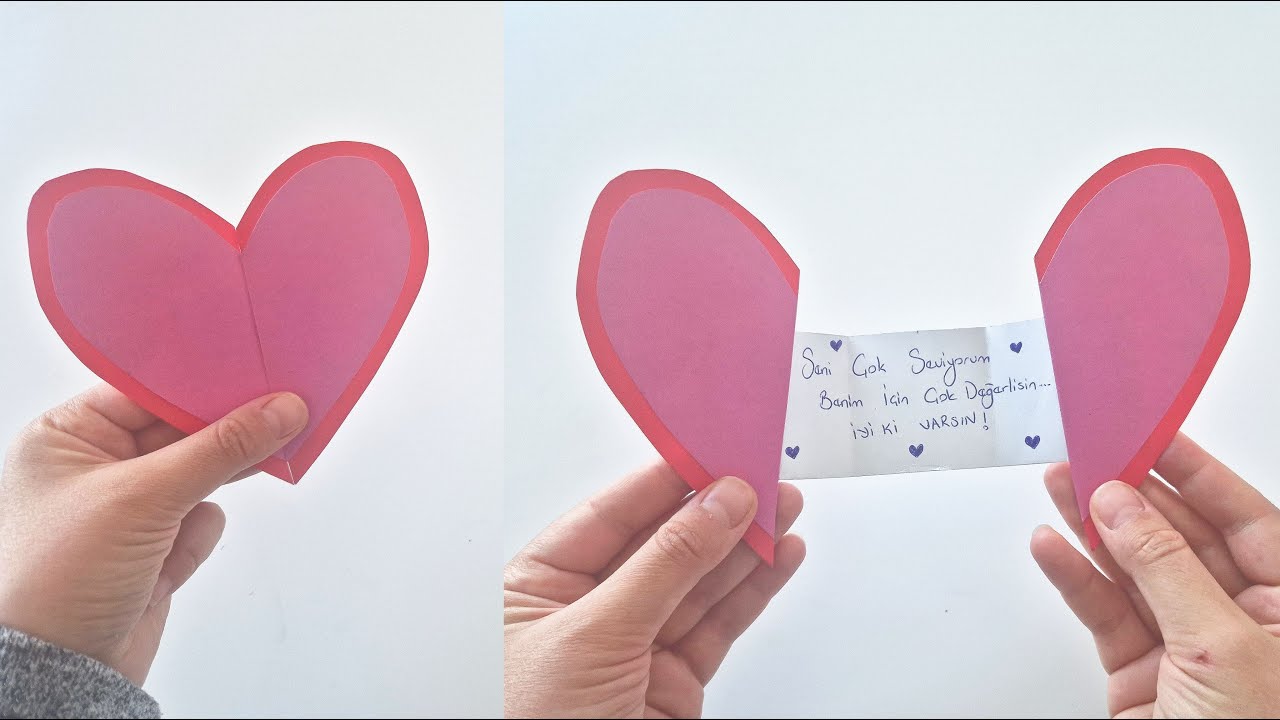 Seni Çok Seviyorum
Benim için Çok Değerlisin...
iyi ki VARSIN!